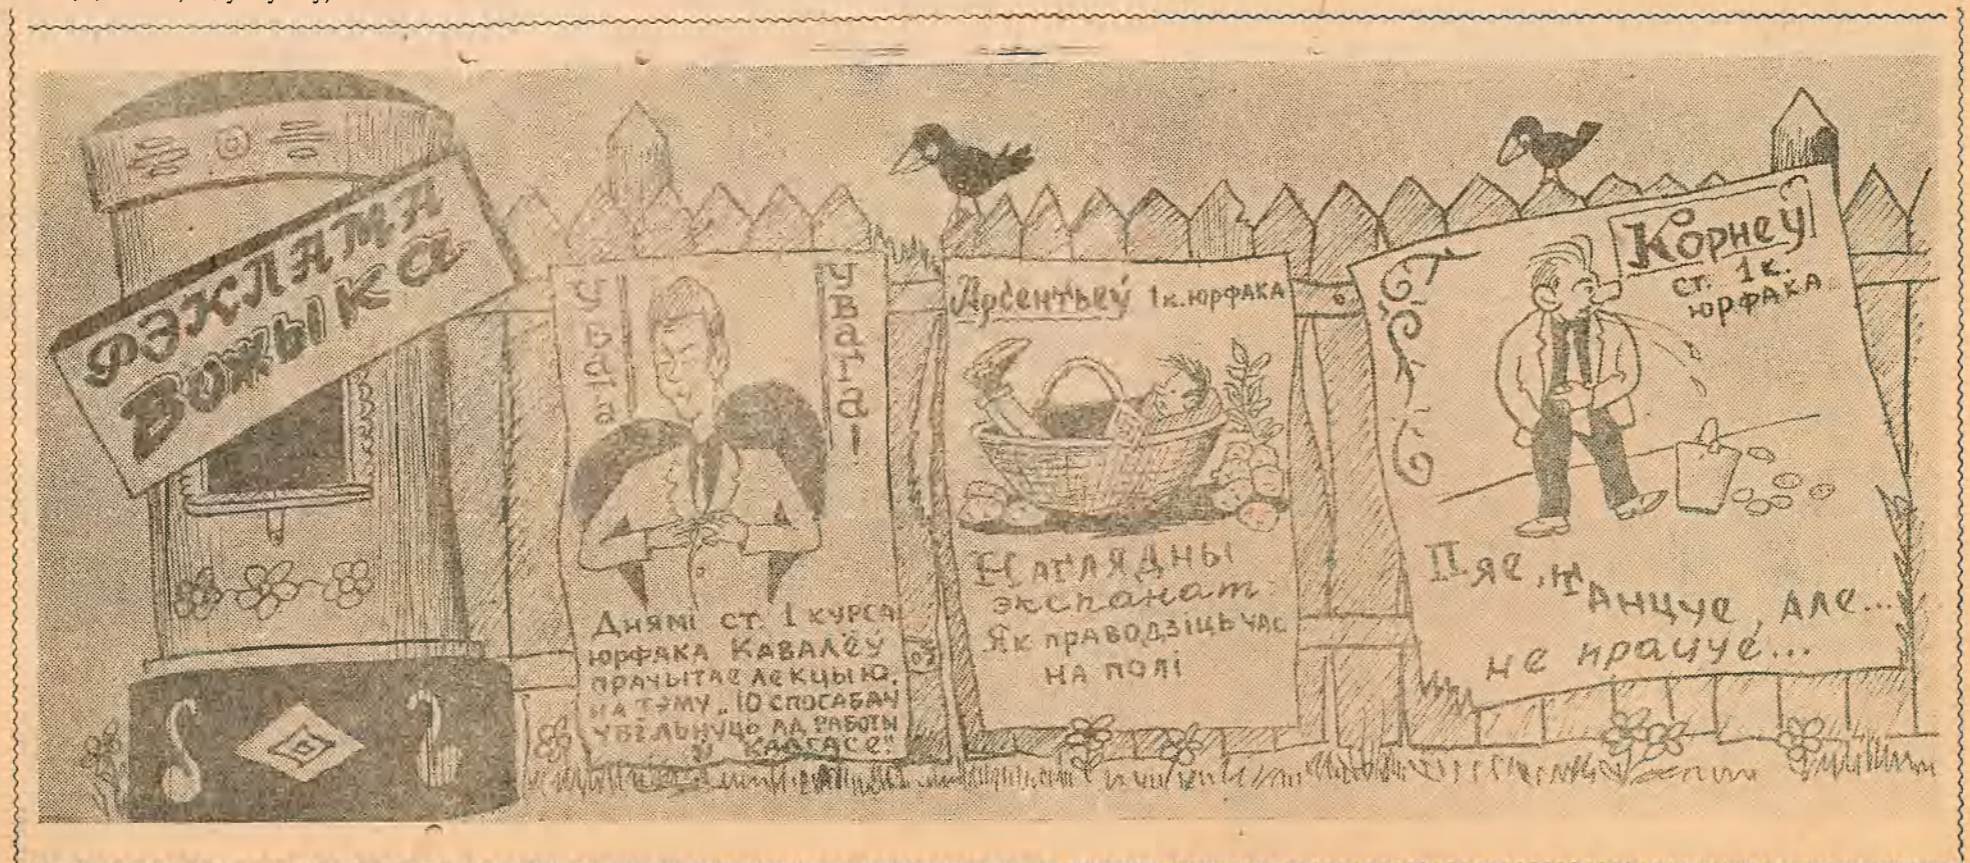 РЭКЛАМА
ВОЖЫКА
Увага
Увага!
Днямі ст. 1 курса
юрфака Кавалёў
прачытае лекцыю
на тэму „10 спосабаў
увільнуць ад работы
ў калгасе."
Арсентьеў 1 к. юрфака
Наглядны
экспанат
Як праводзіць час
на полі
Корнеў
ст. 1 к.
юрфака
Пяе, танцуе, але...
не працуе...